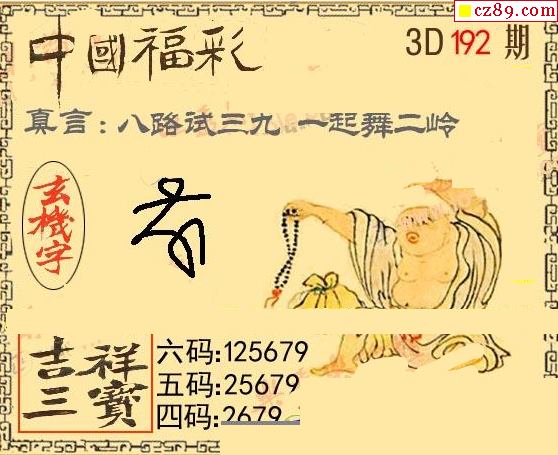 cz89.com
中國福彩
3D 192 期
真言：八路试三九 一起舞二岭
玄機字
吉祥
三寶
六码:125679
五码:25679
四码:2679